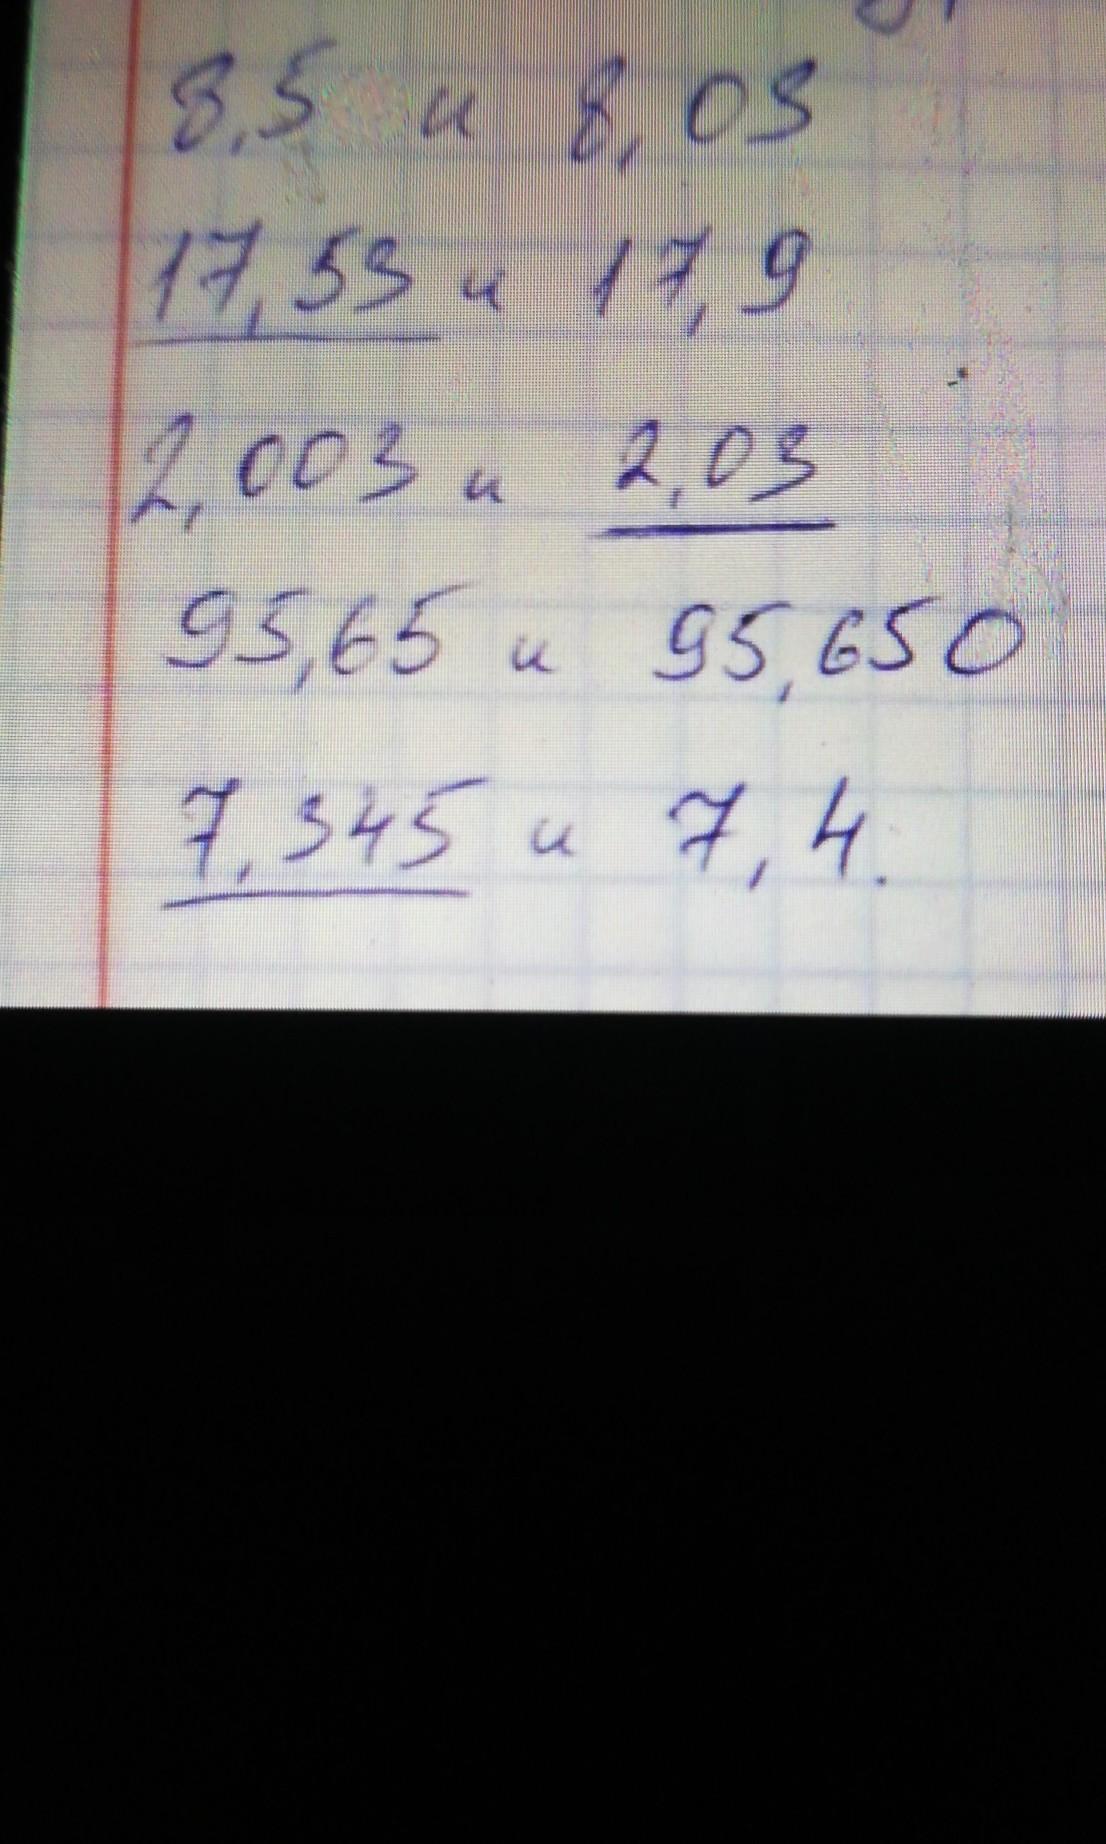 8,5 и 8,03
17,53 и 17,9
2,003 и 2,03
95,65 и 95,650
7,345 и 7,4.